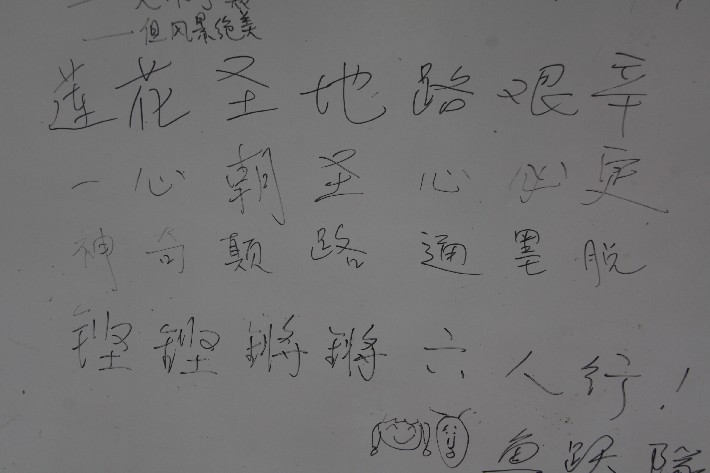 一但风景绝美
莲花圣地路艰辛
一心朝圣心必更
神奇颠路通墨脱
铿铿锵锵六人行！
鱼跃